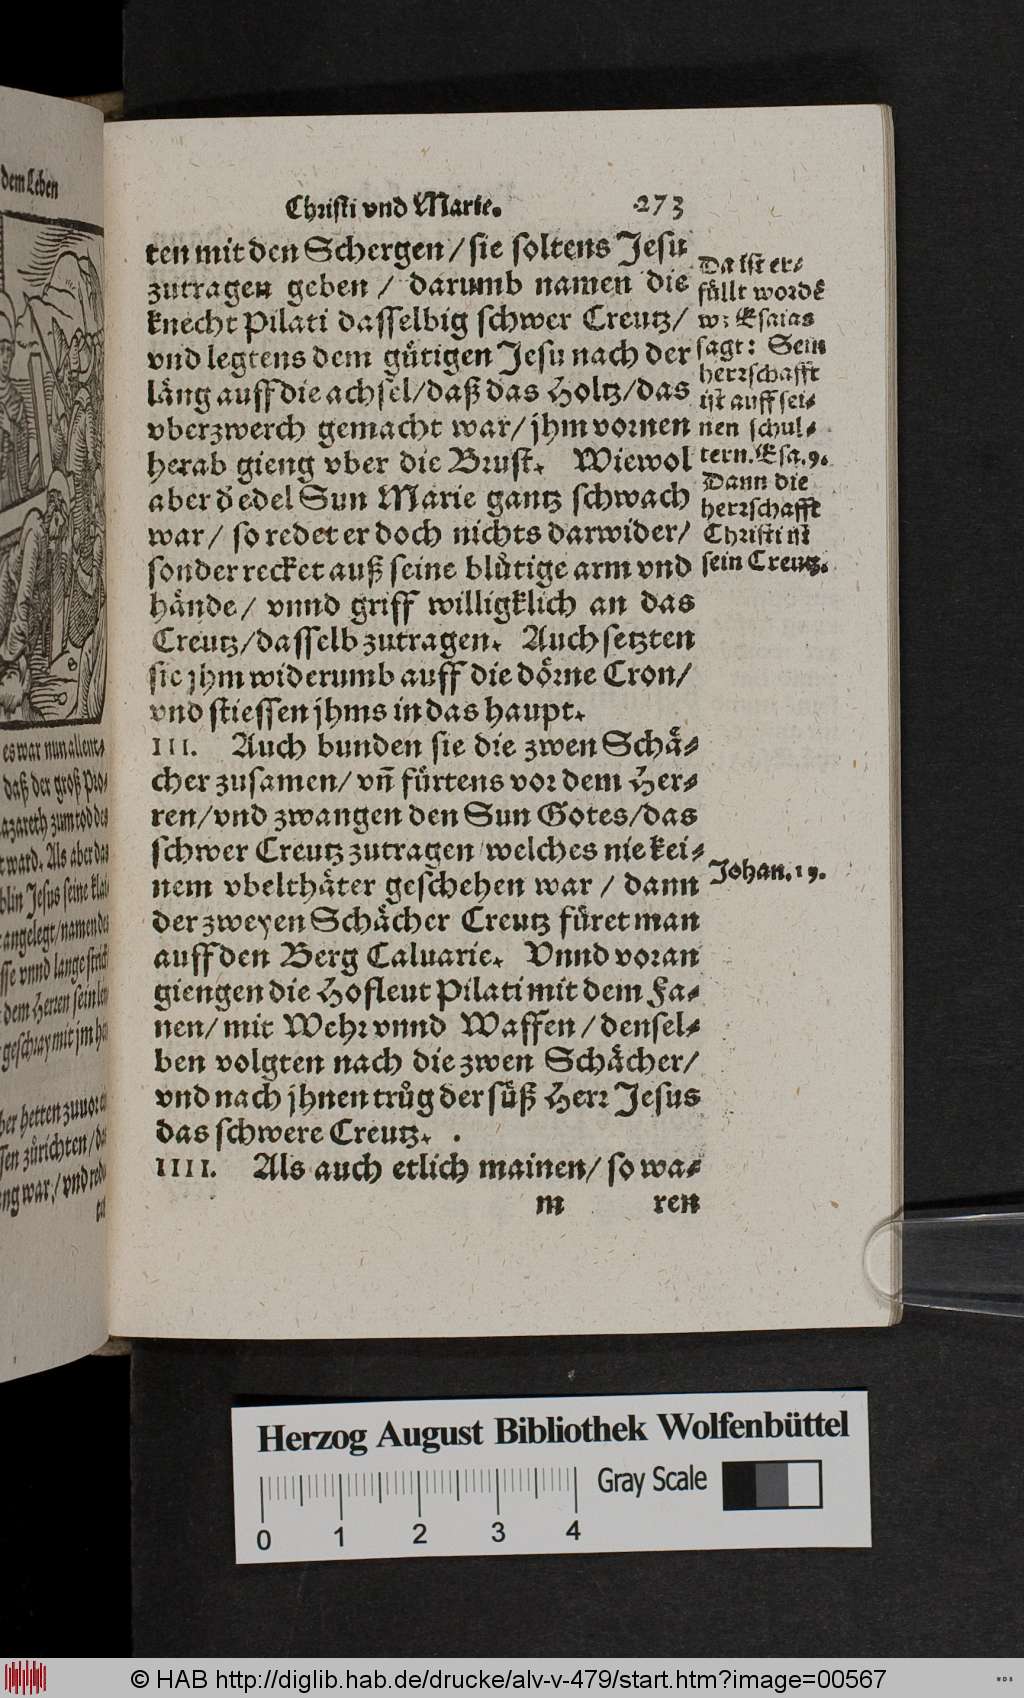 dem Leben
es war nun allent⸗
daß der groß Pro⸗
azareth zum tod des
ward. Als aber das
blin Jesus seine klai
angelegt/namen des
sse vnnd lange strick
dem Herren sein
geschray mit jm
ber hetten zuuor
sen zůrichten/
ng war/vnd
Christi vnd Marie. 273
ten mit den Schergen/sie soltens Jesu
zutragen geben / darumb namen die
knecht Pilati dasselbig schwer Creutz/
vnd legtens dem gütigen Jesu nach der
läng auff die achsel/daß das Holtz/das
vberzwerch gemacht war/jhm vornen
herab gieng vber die Brust. Wiewol
aber d̕ edel Sun Marie gantz schwach
war/ so redet er doch nichts darwider/
sonder recket auß seine blůtige arm vnd
hände/ vnnd griff willigklich an das
Creutz/dasselb zutragen. Auch setzten
sie jhm widerumb auff die dörne Cron/
vnd stiessen jhms in das haupt.
III. Auch bunden sie die zwen Schä⸗
cher zusamen/ vn̄ fürtens vor dem Her⸗
ren/vnd zwangen den Sun Gotes/das
schwer Creutz zutragen/welches nie kei⸗
nem vbelthäter geschehen war / dann
der zweyen Schächer Creutz füret man
auff den Berg Caluarie. Vnnd voran
giengen die Hofleut Pilati mit dem Fa⸗
nen/ mit Wehr vnnd Waffen / densel⸗
ben volgten nach die zwen Schächer/
vnd nach jhnen trůg der süß Herr Jesus
das schwere Creutz.
IIII. Als auch etlich mainen/ so wa⸗
m ren
Da ist er⸗
füllt wordē
w: Esaias
sagt: Sein
herrschafft
ist auff sei⸗
nen schul⸗
tern. Esa. 9.
Dann die
herrschafft
Christi ist
sein Creutz.
Johan. 19.
Herzog August Bibliothek Wolfenbüttel
Gray Scale
0 1 2 3 4
© HAB http://diglib.hab.de/drucke/alv-v-479/start.htm?image=00567